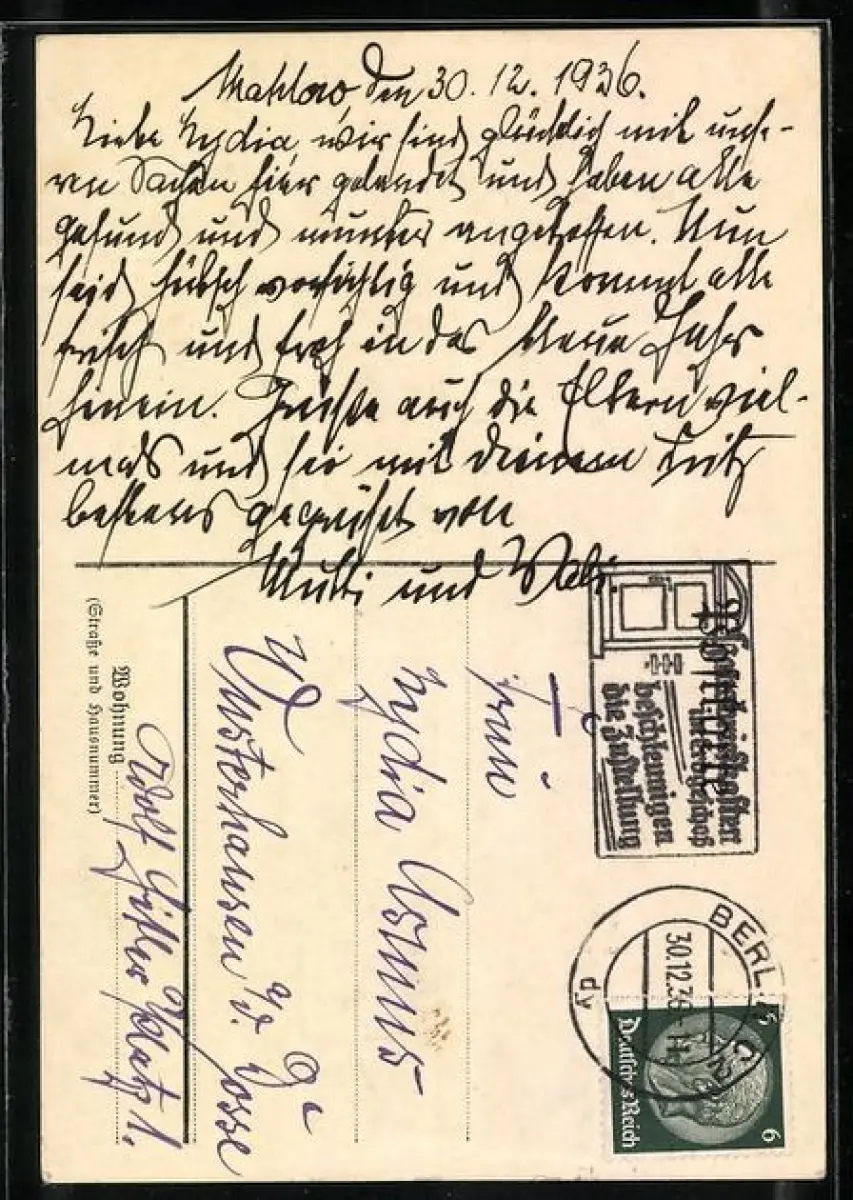 Mahlow, den 30.12.1936.
Liebe Lydia, wir sind glücklich mit unse-
ren Sachen hier gelandet und haben alle
gesund und munter angetroffen. Nun
seid hübsch vorsichtig und kommt alle
frisch und froh in das Neue Jahr
hinein. Grüße auch die Eltern viel-
mals und sei mit Deinem Fritz
bestens gegrüßt von
Mutti und
Frau
Lydia Asmus
Wusterhausen a/d. Dosse
Adolf Hitler Platz 1.
Wohnung
(Straße und Hausnummer)
Hausbriefkasten
beschleunigen
die Zustellung
BERLIN
30.12.36
dy
Deutsches Reich
6
6